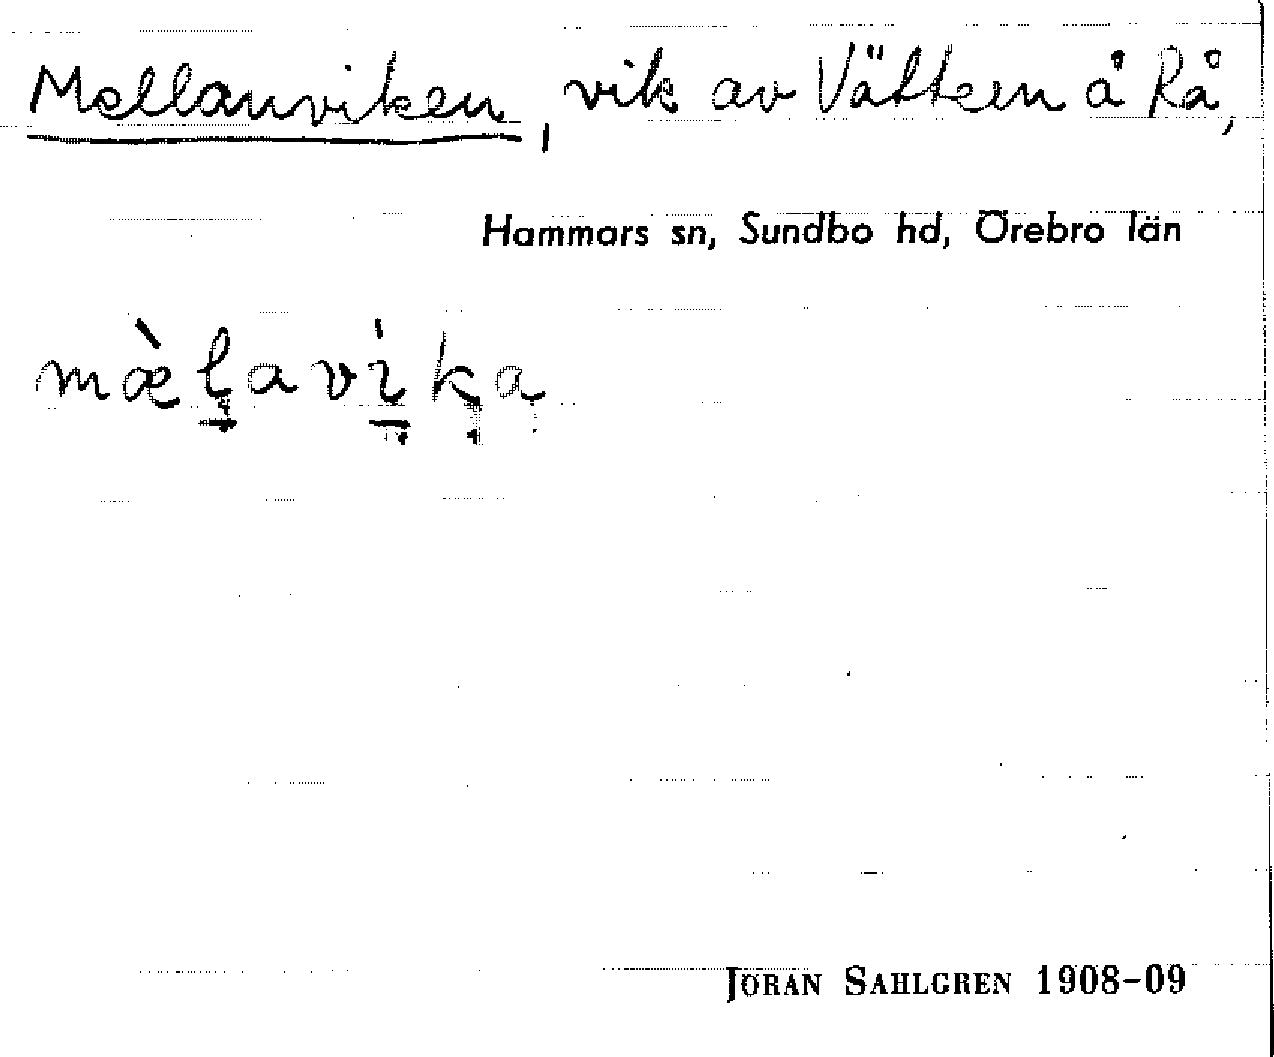 Mellanviken, vik av Vättern å Rå,
Hammars sn, Sundbo hd, Örebro län
mæ̀l̠avi̠ka
JÖRAN SAHLGREN 1908-09